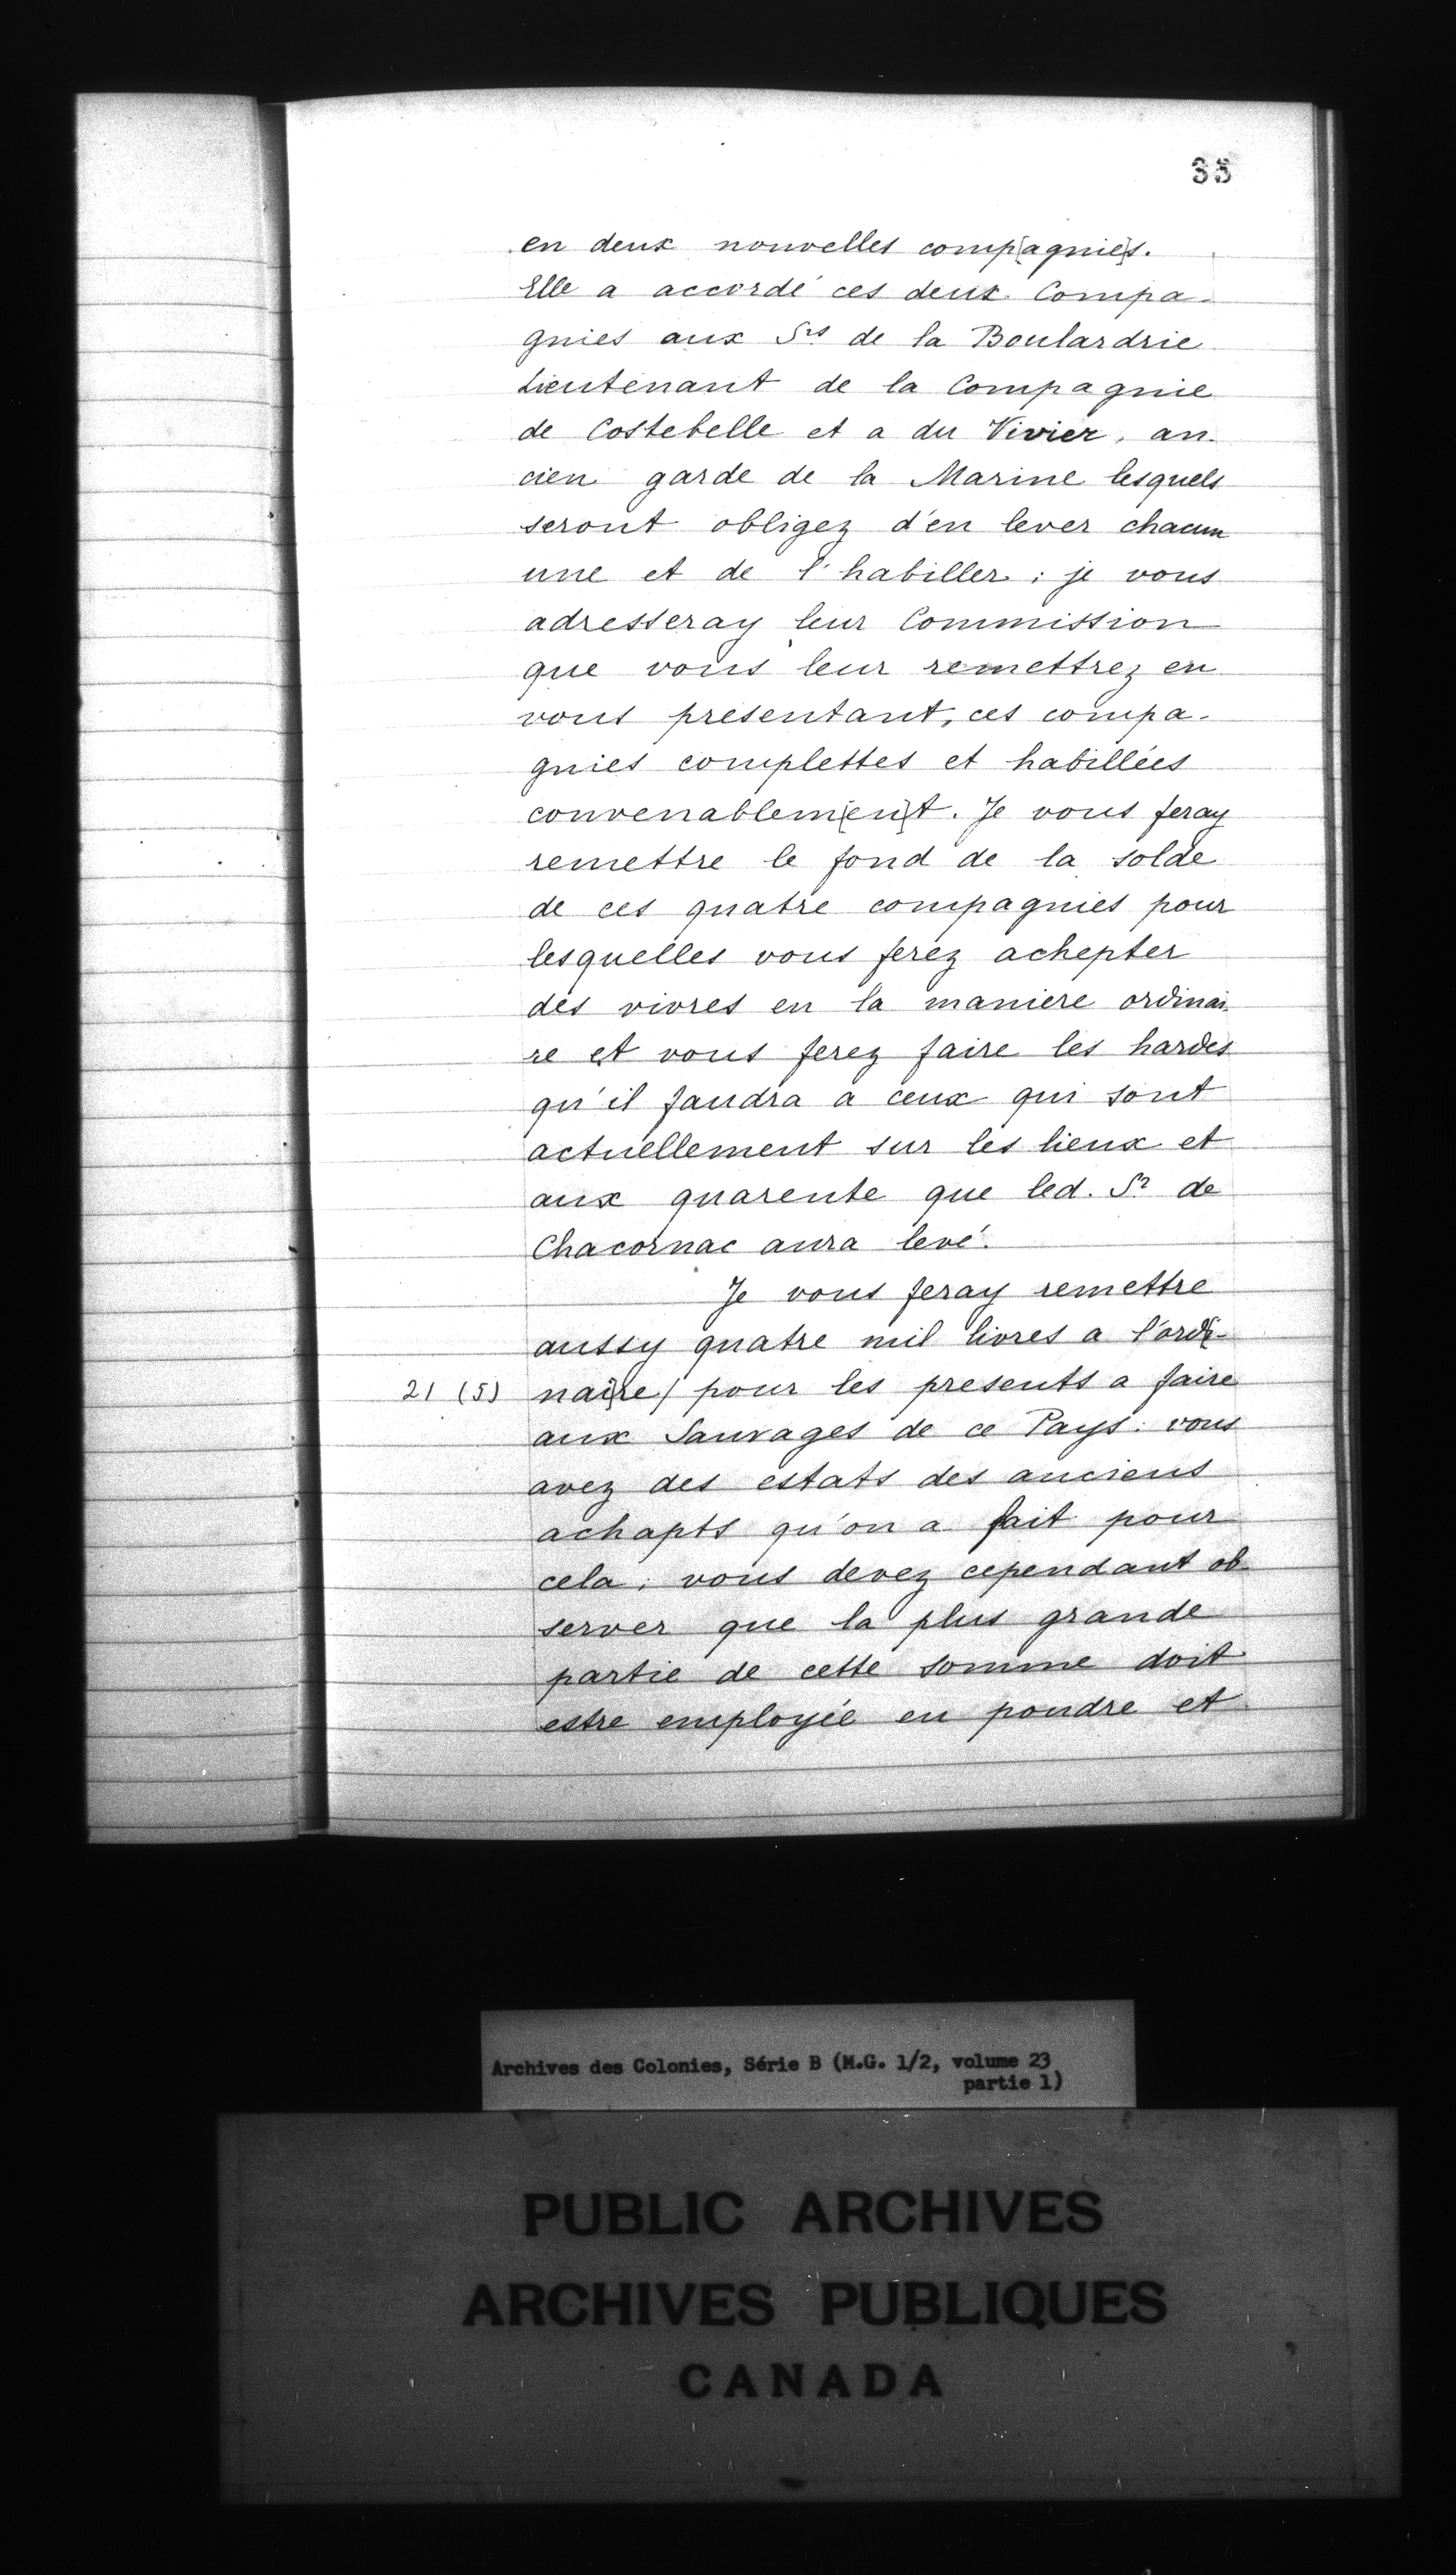 33
en deux nouvelles comp[agnie]s.
Elle a accordé ces deux Compa-
gnies aux Srs de la Boulardrie
Lieutenant de la Compagnie
de Costebelle et a du Vivier, an-
cien garde de la Marine lesquels
seront obligez d'en lever chacun
une et de l'habiller; je vous
adresseray leur Commission
que vous leur remettrez en
vous presentant, ces compa-
gnies complettes et habillées
convenablem[en]t. Je vous feray
remettre le fond de la solde
de ces quatre compagnies pour
lesquelles vous ferez achepter
des vivres en la maniere ordinai-
re et vous ferez faire les hardes
qu'il faudra a ceux qui sont
actuellement sur les lieux et
aux quarente que led. Sr de
Chacornac aura levé.
Je vous feray remettre
aussy quatre mil livres a l'ord[i-
21 (5) nai]re/ pour les presents a faire
aux Sauvages de ce Pays: vous
avez des estats des anciens
achapts qu'on a fait pour
cela; vous devez cependant ob-
server que la plus grande
partie de cette somme doit
estre employée en poudre et
Archives des Colonies, Série B (M.G. 1/2, volume 23
partie 1)
PUBLIC ARCHIVES
ARCHIVES PUBLIQUES
CANADA